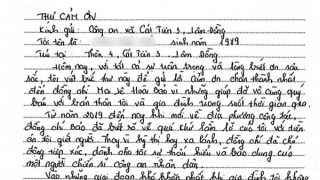 THƯ CẢM ƠN
Kính gửi: Công an xã Cát Tiên 3, Lâm Đồng
Tôi tên là sinh năm 1989
Trú tại: Thôn 4, Cát Tiên 3, Lâm Đồng
Hôm nay, với tất cả sự trân trọng và lòng biết ơn sâu
sắc, tôi viết bức thư này để gửi lời cảm ơn chân thành nhất
đến đồng chí Ma Lê Hoài Bảo vì những giúp đỡ vô cùng quý
báu với bản thân tôi và gia đình trong suốt thời gian qua.
Từ năm 2019 đến nay khi mới về địa phương công tác,
đồng chí Bảo đã biết rõ về quá khứ lầm lỡ của tôi và tiền
án tội giết người. Thay vì kỳ thị hay xa lánh, đồng chí đã chủ
động tiếp xúc, dành cho tôi sự thấu hiểu và bao dung của
một người chiến sĩ công an nhân dân.
Vào những giai đoạn khó khăn nhất khi gia đình tôi không